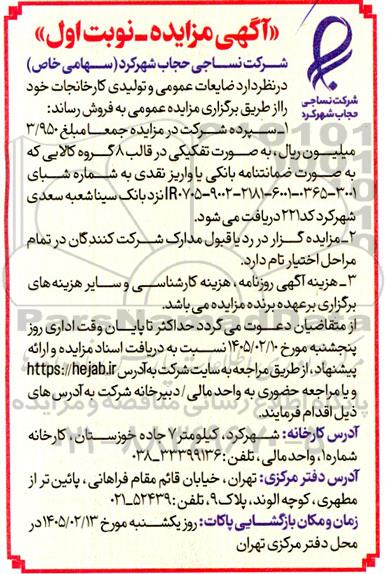 «آگهی مزایده ـ نوبت اول»
شرکت نساجی حجاب شهرکرد (سهامی خاص)
شرکت نساجی
حجاب شهرکرد
در نظر دارد ضایعات عمومی و تولیدی کارخانجات خود
را از طریق برگزاری مزایده عمومی به فروش رساند:
۱ـ سپرده شرکت در مزایده جمعا مبلغ ۳/۹۵۰
میلیون ریال، به صورت تفکیکی در قالب ۸ گروه کالایی که
به صورت ضمانتنامه بانکی یا واریز نقدی به شماره شبای
IR۰۷۰۵-۹۰۰۲-۲۱۸۱-۶۰۰۱-۰۳۶۵-۳۰۰۱ نزد بانک سینا شعبه سعدی
شهرکرد کد ۲۲۱ دریافت می شود.
۲ـ مزایده گزار در رد یا قبول مدارک شرکت کنندگان در تمام
مراحل اختیار تام دارد.
۳ـ هزینه آگهی روزنامه، هزینه کارشناسی و سایر هزینه های
برگزاری بر عهده برنده مزایده می باشد.
از متقاضیان دعوت می گردد حداکثر تا پایان وقت اداری روز
پنجشنبه مورخ ۱۴۰۵/۰۲/۱۰ نسبت به دریافت اسناد مزایده و ارائه
پیشنهاد، از طریق مراجعه به سایت شرکت به آدرس https://hejab.ir
و یا مراجعه حضوری به واحد مالی / دبیرخانه شرکت به آدرس های
ذیل اقدام فرمایند.
آدرس کارخانه: شهرکرد، کیلومتر ۷ جاده خوزستان، کارخانه
شماره ۱، واحد مالی، تلفن: ۳۳۳۹۹۱۳۶-۰۳۸
آدرس دفتر مرکزی: تهران، خیابان قائم مقام فراهانی، پائین تر از
مطهری، کوچه الوند، پلاک ۹، تلفن: ۵۲۴۳۹-۰۲۱
زمان و مکان بازگشایی پاکات: روز یکشنبه مورخ ۱۴۰۵/۰۲/۱۳ در
محل دفتر مرکزی تهران